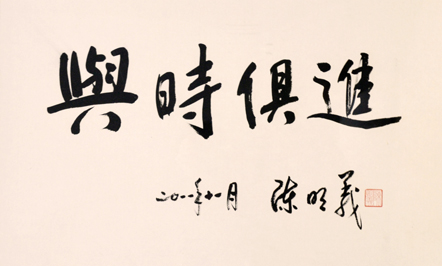 與時俱進
二〇一一年十一月 陈明義